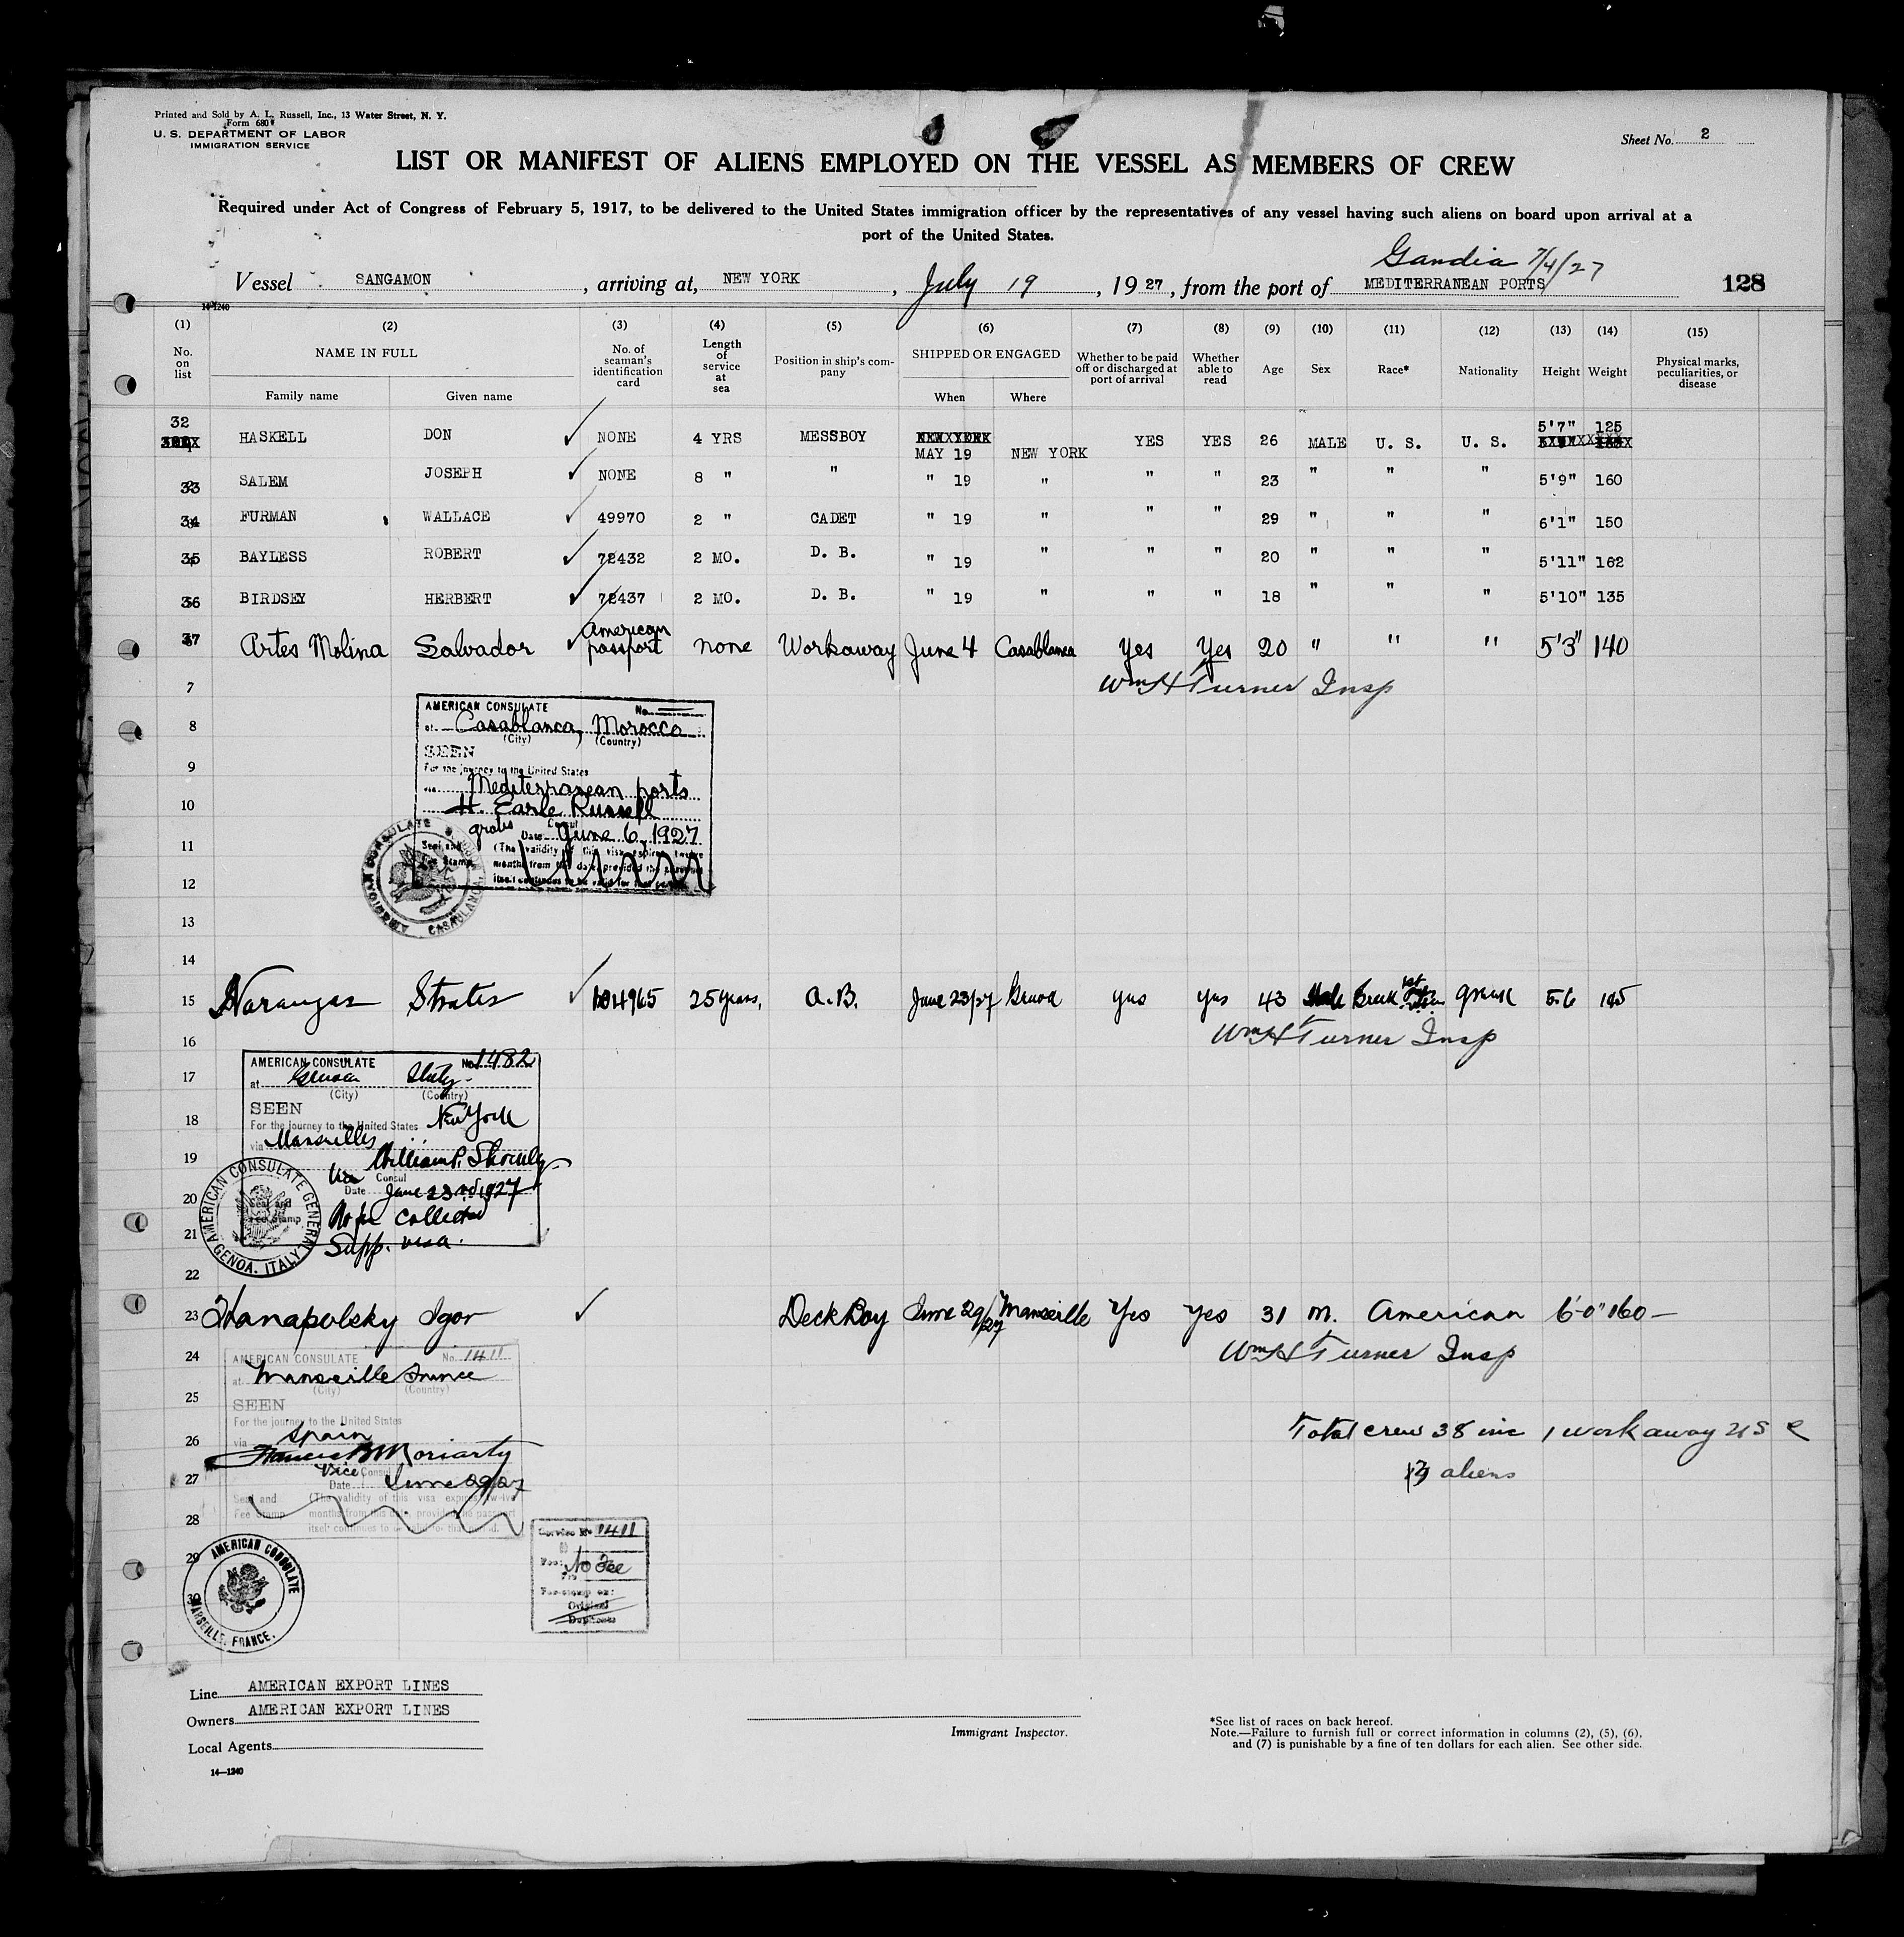 Printed and Sold by A. L. Russell, Inc., 13 Water Street, N. Y.
Form 680
U. S. DEPARTMENT OF LABOR
IMMIGRATION SERVICE
Sheet No. 2
LIST OR MANIFEST OF ALIENS EMPLOYED ON THE VESSEL AS MEMBERS OF CREW
Required under Act of Congress of February 5, 1917, to be delivered to the United States immigration officer by the representatives of any vessel having such aliens on board upon arrival at a
port of the United States.
Gandia 7/4/27
Vessel SANGAMON , arriving at, NEW YORK , July 19 , 1927 , from the port of MEDITERRANEAN PORTS 128
14-1240
(1) (2) (3) (4) (5) (6) (7) (8) (9) (10) (11) (12) (13) (14) (15)
No. on list NAME IN FULL Family name Given name No. of seaman's identification card Length of service at sea Position in ship's company SHIPPED OR ENGAGED When Where Whether to be paid off or discharged at port of arrival Whether able to read Age Sex Race* Nationality Height Weight Physical marks, peculiarities, or disease
32 HASKELL DON ✓ NONE 4 YRS MESSBOY MAY 19 NEW YORK YES YES 26 MALE U. S. U. S. 5'7" 125
33 SALEM JOSEPH ✓ NONE 8 " " " 19 " " " 23 " " " 5'9" 160
34 FURMAN WALLACE ✓ 49970 2 " CADET " 19 " " " 29 " " " 6'1" 150
35 BAYLESS ROBERT ✓ 72432 2 MO. D. B. " 19 " " " 20 " " " 5'11" 162
36 BIRDSEY HERBERT ✓ 72437 2 MO. D. B. " 19 " " " 18 " " " 5'10" 135
37 Artes Molina Salvador ✓ American passport none Workaway June 4 Casablanca Yes Yes 20 " " " 5'3" 140
7 Wm H Turner Insp
AMERICAN CONSULATE No.
8 at Casablanca, Morocco
(City) (Country)
SEEN
9 For the journey to the United States
via Mediterranean ports
10 H. Earle Russell
gratis Consul
Date June 6, 1927
11 Seal and Fee Stamp (The validity of this visa expires twelve
months from this date provided the passport
12 itself continues to be valid for that period.
AMERICAN CONSULATE CASABLANCA
13
14
15 Narangas Strates ✓ 104965 25 years, A.B. June 23/27 Genoa yes yes 43 Male Greek Greek 5.6 145
16 Wm H Turner Insp
AMERICAN CONSULATE No. 1482
17 at Genoa Italy
(City) (Country)
SEEN
18 For the journey to the United States New York
via Marseilles
19 William P. Shockley
Vice Consul
20 Date June 23rd 1927
Seal and Fee Stamp No fee collected
21 Supp. visa.
AMERICAN CONSULATE GENERAL GENOA, ITALY
22
23 Hanapolsky Igor ✓ Deck Boy June 29/27 Marseille Yes Yes 31 M. American 6'-0" 160
24 Wm H Turner Insp
AMERICAN CONSULATE No. 1411
at Marseille France
(City) (Country)
25 SEEN
For the journey to the United States
via Spain
26 Francis B Moriarty
Total crew 38 inc 1 workaway U S C
27 Vice Consul
Date June 29/27
aliens
Seal and Fee Stamp (The validity of this visa expires twelve
months from this date, providing the passport
28 itself continues to be valid for that period.
Service No 1411
29 Fee: No Fee
Fee stamp on:
Original
Duplicate
30
AMERICAN CONSULATE MARSEILLE, FRANCE.
Line AMERICAN EXPORT LINES
Owners AMERICAN EXPORT LINES
Local Agents
14—1240
Immigrant Inspector.
*See list of races on back hereof.
Note.—Failure to furnish full or correct information in columns (2), (5), (6),
and (7) is punishable by a fine of ten dollars for each alien. See other side.